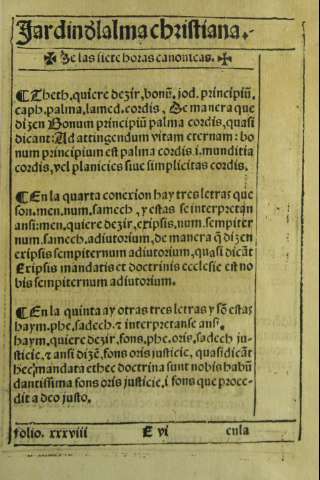 Jardin d̄l alma christiana.
✠ De las siete horas canonicas. ✠
¶ Theth, quiere dezir, bonū. iod. principiū.
caph, palma, lamed. cordis, De manera que
dizen Bonum principiū palma cordis, quasi
dicant: Ad attingendum vitam eternam: bo
num principium est palma cordis i. munditia
cordis, vel planicies siue simplicitas cordis.
¶ En la quarta conexion hay tres letras que
son. men. num. samech, y estas se interpretan
ansi: men, quiere dezir, exipsis, num. sempiter
num. samech. adiutorium, de manera q̄ dizen
exipsis sempiternum adiutorium, quasi dicāt
Exipsis mandatis et doctrinis ecclesie est no
bis sempiternum adiutorium.
¶ En la quinta ay otras tres letras y sō estas
haym. phe, sadech. ⁊ interpretanse ansi.
haym, quiere dezir, fons, phe, oris, sadech ju-
sticie, ⁊ ansi dizē, fons oris justicie, quasi dicāt
hec mandata et hec doctrina sunt nobis habū
dantissima fons oris justicie, i fons que proce-
dit a deo justo.
folio. xxxviii E vi cula